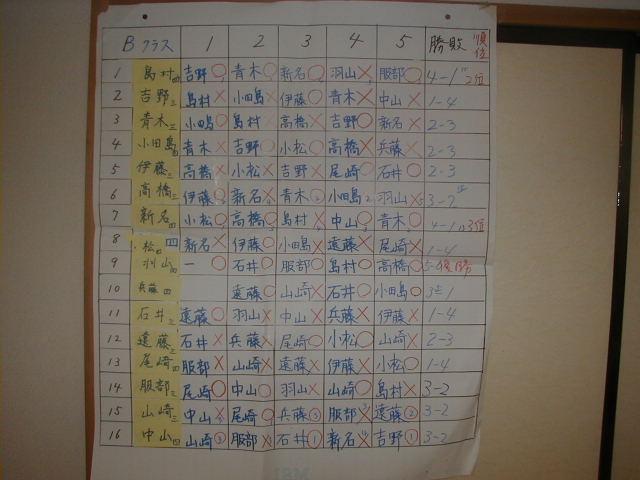 Bクラス 1 2 3 4 5 勝敗 順位
1 島村四 吉野○ 青木○ 新名○ 羽山× 服部○ 4-1 2位
2 吉野三 島村× 小田島× 伊藤○ 青木× 中山× 1-4
3 青木三 小田島○ 島村× 高橋× 吉野○ 新名× 2-3
4 小田島 青木× 吉野○ 小松○ 高橋× 兵藤× 2-3
5 伊藤三 高橋× 小松× 吉野× 尾崎○ 石井○ 2-3
6 高橋三 伊藤○ 新名× 青木○ 小田島 羽山× 3-2
7 新名四 小松○ 高橋○ 島村× 中山○ 青木○ 4-1 3位
8 小松四 新名× 伊藤○ 小田島× 遠藤× 尾崎× 1-4
9 羽山四 ー○ 石井○ 服部○ 島村○ 高橋○ 5- 優勝
10 兵藤四 遠藤○ 山崎× 石井○ 小田島○ 3 1
11 石井三 遠藤○ 羽山× 中山× 兵藤× 伊藤× 1-4
12 遠藤三 石井× 兵藤× 尾崎○ 小松○ 山崎× 2-3
13 尾崎四 服部× 山崎× 遠藤× 伊藤× 小松○ 1-4
14 服部三 尾崎○ 中山○ 羽山× 山崎○ 島村× 3-2
15 山崎三 中山× 尾崎○ 兵藤③ 服部× 遠藤② 3-2
16 中山四 山崎③ 服部× 石井① 新名× 吉野① 3-2